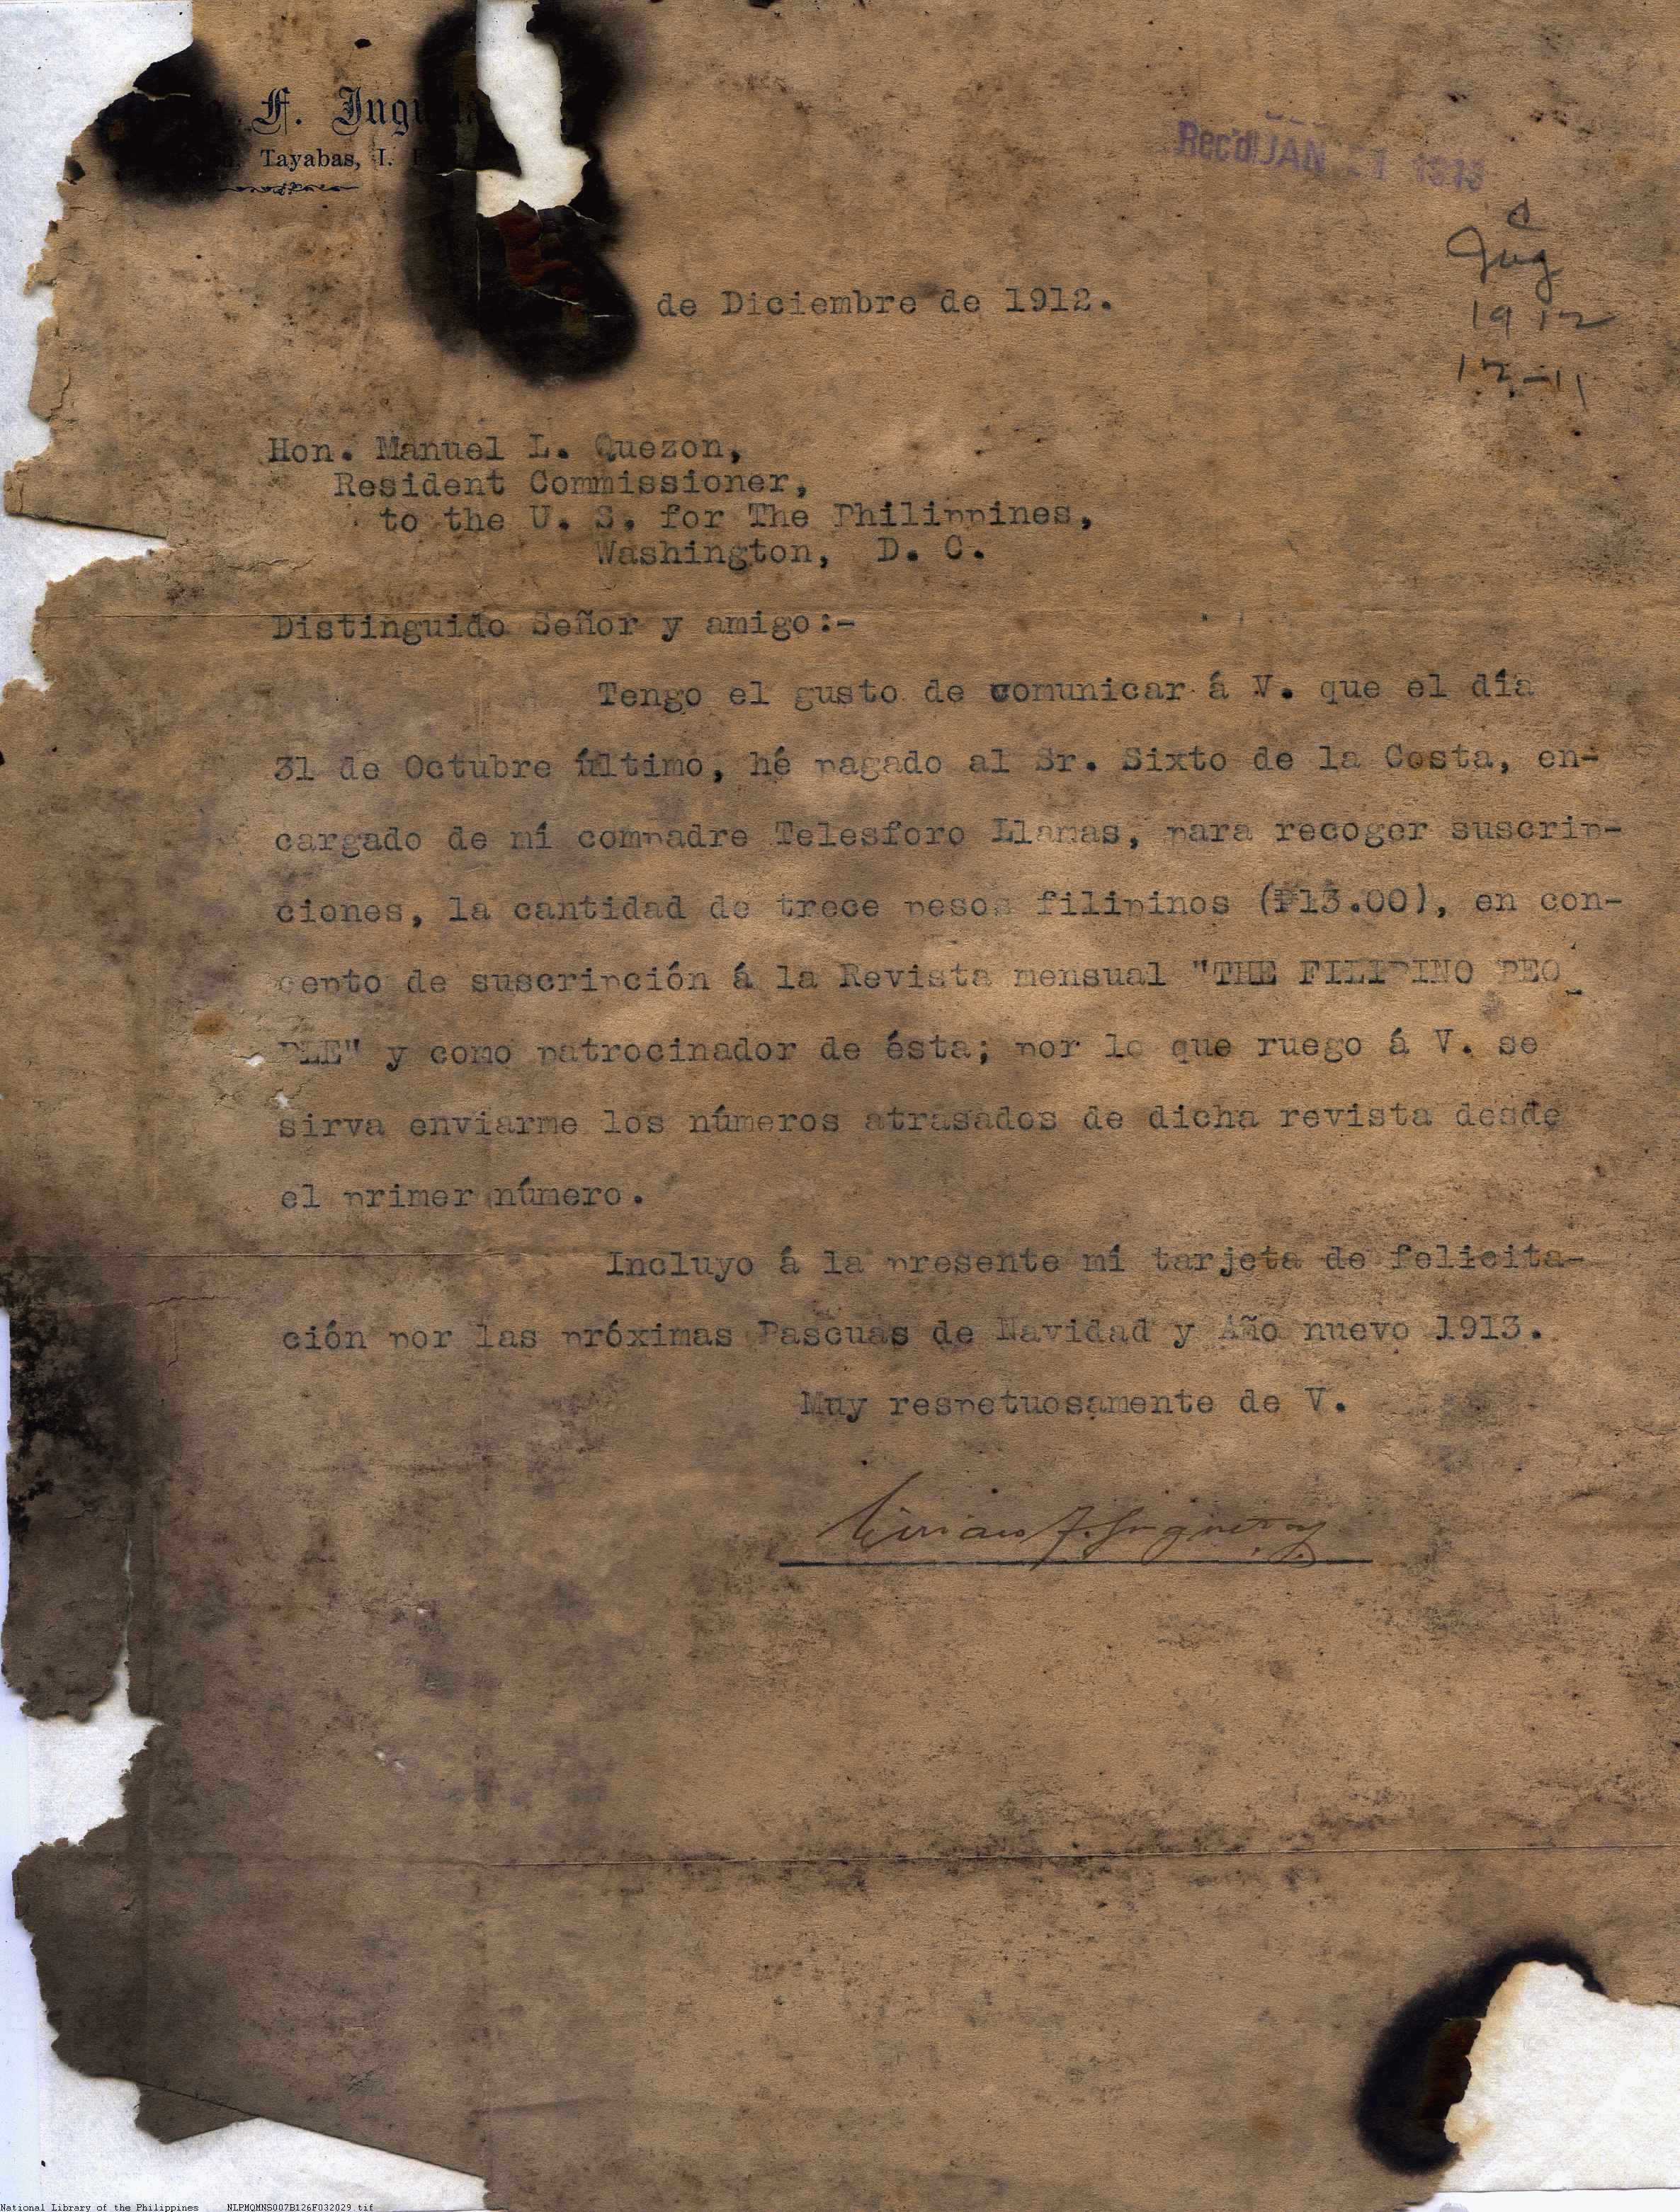 F. Jugu
Tayabas, I.
Rec'd JAN 21 1913
Jug
1912
12-11
de Diciembre de 1912.
Hon. Manuel L. Quezon,
Resident Commissioner,
to the U. S. for The Philippines,
Washington, D. C.
Distinguido Señor y amigo:-
Tengo el gusto de comunicar á V. que el día
31 de Octubre último, hé pagado al Sr. Sixto de la Costa, en-
cargado de mí compadre Telesforo Llamas, para recoger suscrip-
ciones, la cantidad de trece pesos filipinos (₱13.00), en con-
cepto de suscripción á la Revista mensual "THE FILIPINO PEO_
PLE" y como patrocinador de ésta; por lo que ruego á V. se
sirva enviarme los números atrasados de dicha revista desde
el primer número.
Incluyo á la presente mí tarjeta de felicita-
ción por las próximas Pascuas de Navidad y Año nuevo 1913.
Muy respetuosamente de V.
National Library of the Philippines NLPMQMNS007B126F032029.tif